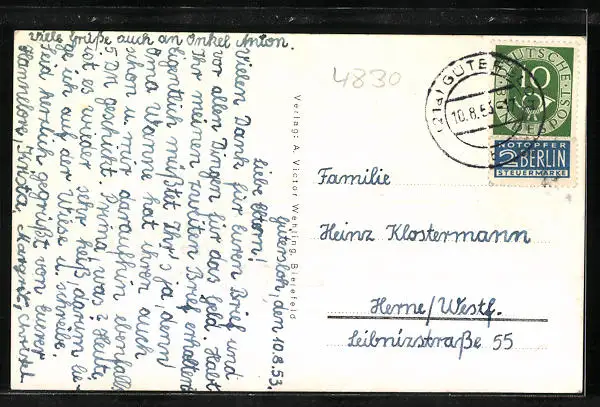 Viele Grüße auch an Onkel Anton.
Gütersloh, den 10.8.53.
Liebe Eltern!
Vielen Dank für Euren Brief und
vor allen Dingen für das Geld. Habt
Ihr meinen zweiten Brief erhalten?
Eigentlich müßtet Ihr's ja, denn
Oma Wanne hat ihren auch
schon u. mir daraufhin ebenfalls
5 DN geschickt. Prima was? Heute
ist es wieder sehr heiß, darum lie-
ge ich auf der Wiese u. schreibe.
Seid herzlich gegrüßt von Eurer
Hannelore, Christa, Margret, Christel
4830
Verlag: A. Victor Wehling, Bielefeld
(21a) GÜTERSLOH
10.8.53
DEUTSCHE
10
BUNDESPOST
NOTOPFER
2 BERLIN
STEUERMARKE
Familie
Heinz Klostermann
Herne/Westf.
Leibnizstraße 55